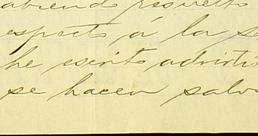 abiendo resuelto
especto á la se
he escrito advirti
se hacen salv